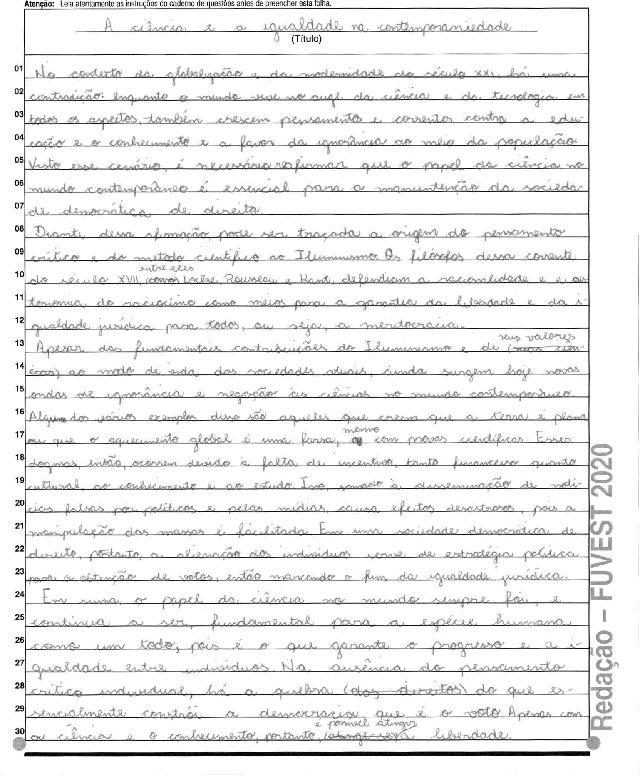 Atenção: Leia atentamente as instruções do caderno de questões antes de preencher esta folha.
A ciência e a igualdade na contemporaniedade
(Título)
01 No contexto da globalização e da modernidade do século XXI, há uma
02 contradição: enquanto o mundo vive no auge da ciência e da tecnologia em
03 todos os aspectos, também crescem pensamentos e correntes contra a edu-
04 cação e o conhecimento e a favor da ignorância ao meio da população.
05 Visto esse cenário, é necessário reafirmar que o papel da ciência no
06 mundo contemporâneo é essencial para a manuntenção da socieda-
07 de democrática de direito.
08 Diante, dessa afirmação, pode ser traçada a origem do pensamento
09 crítico e do metodo científico ao Iluminismo. Os filósofos dessa corrente
10 do século XVII, (como) entre eles Locke, Rousseau e Kant, defendiam a racionalidade e a au-
11 tonomia do raciocínio como meios para a garantia da liberdade e da i-
12 gualdade jurídica para todos, ou seja, a meritocracia.
13 Apesar das fundamentais contribuições do Iluminismo e de seus valores
14 ao modo de vida das sociedades atuais, ainda surgem hoje novas
15 ondas de ignorância e negação às ciências no mundo contemporâneo.
16 Alguns dos vários exemplos disso são aqueles que creem que a terra é plana
17 ou que o aquecimento global é uma farsa, mesmo com provas científicas. Esses
18 dogmas, então, ocorrem devido à falta de incentivo, tanto financeiro quanto
19 cultural, ao conhecimento e ao estudo. Isso, somado à disseminação de notí-
20 cias falsas por políticos e pelas mídias, causa efeitos desastrosos, pois a
21 manipulação das massas é facilitada. Em uma sociedade democrática de
22 direito, portanto, a alienação dos indivíduos serve de estratégia política
23 para a obtenção de votos, então marcando o fim da igualdade jurídica.
24 Em suma, o papel da ciência no mundo sempre foi, e
25 continua a ser, fundamental para a espécie humana
26 como um todo, pois é o que garante o progresso e a i-
27 gualdade entre indivíduos. Na ausência do pensamento
28 crítico individual, há a quebra (dos direitos) do que es-
29 sencialmente constrói a democracia, que é o voto. Apenas com
30 a ciência e o conhecimento, portanto, é possível atingir a liberdade.
Redação – FUVEST 2020